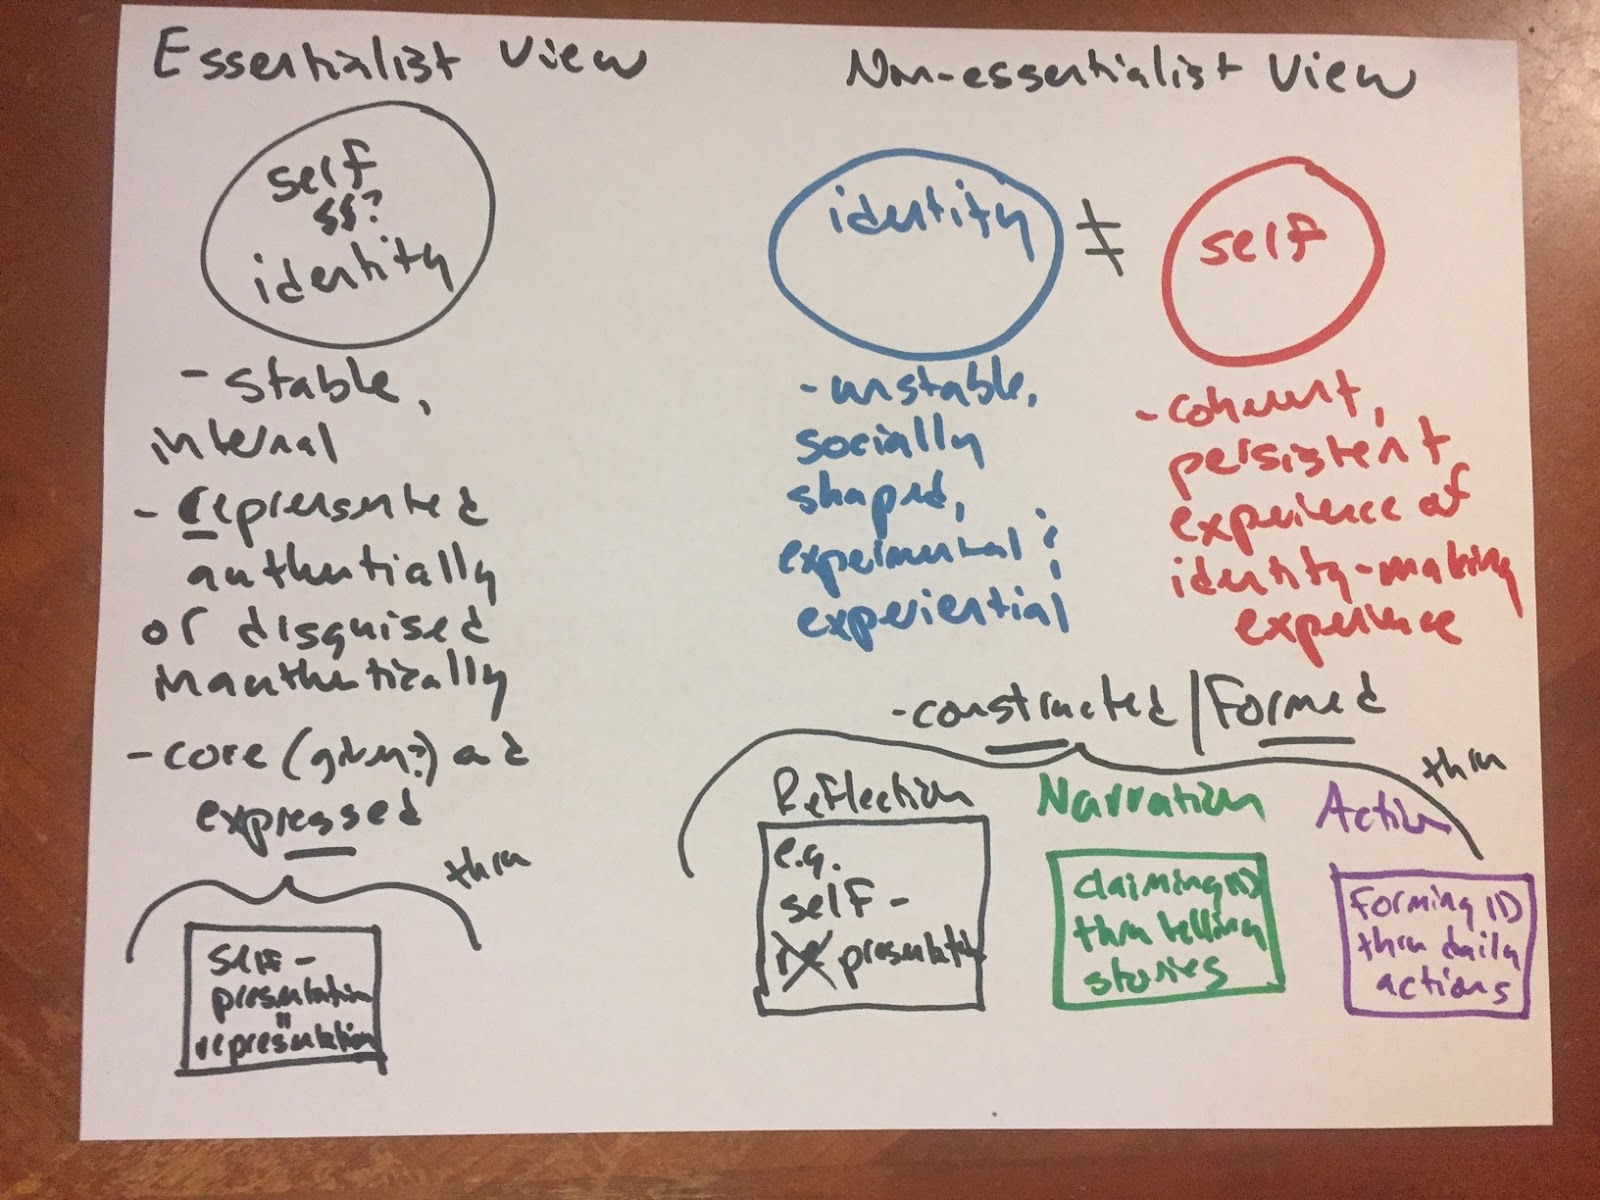 Essentialist View
self
ss?
identity
- stable,
internal
- represented
authentially
or disguised
inauthentically
- core (given?) and
expressed
thru
self-
presentation
=
representation
Non-essentialist View
identity
≠
self
- unstable,
socially
shaped,
experimental &
experiential
- coherent,
persistent
experience of
identity-making
experience
- constructed / Formed
thru
Reflection
e.g.
self-
presentation
Narration
claiming ID
thru telling
stories
Action
Forming ID
thru daily
actions